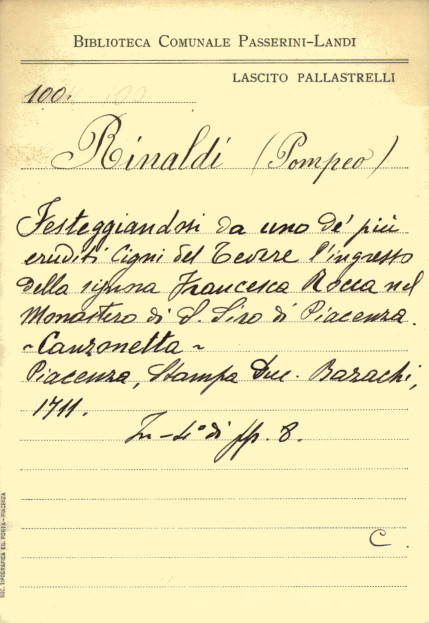 BIBLIOTECA COMUNALE PASSERINI-LANDI
LASCITO PALLASTRELLI
100.
Rinaldi (Pompeo)
Festeggiandosi da uno de' più
eruditi Cigni del Tevere l'ingresso
della signora Francesca Rocca nel
Monastero di S. Siro di Piacenza.
- Canzonetta -
Piacenza, Stampa Duc. Bazachi,
1711.
In-4° di pp. 8.
C.
SOC. TIPOGRAFICA ED. PORTA - PIACENZA